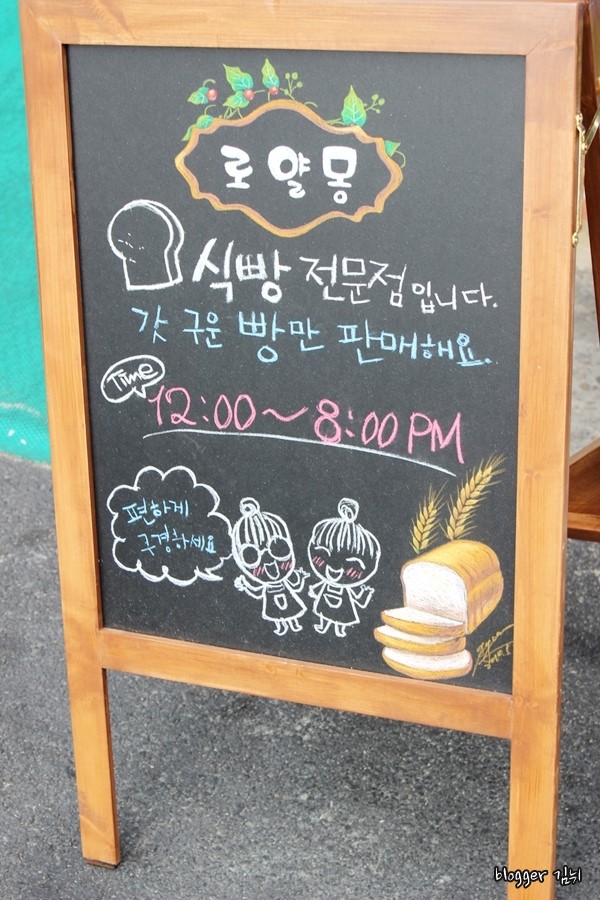 로얄몽
식빵 전문점입니다.
갓 구운 빵만 판매해요.
Time
12:00~8:00 PM
편하게
구경하세요
blogger 김뉘